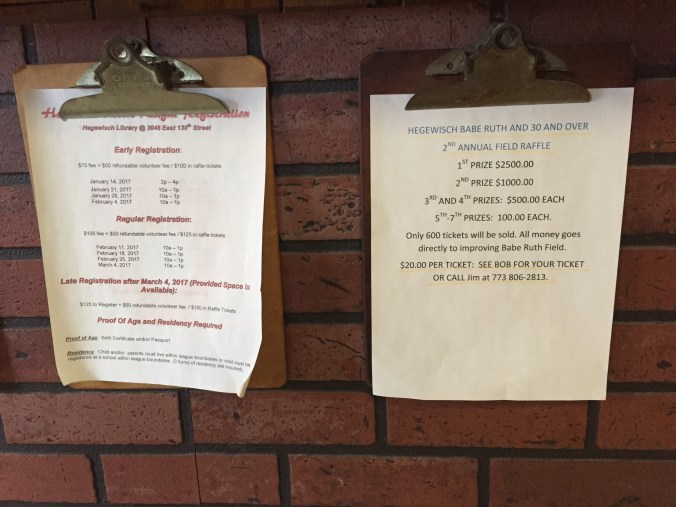 Registration
Hegewisch Library @ 3048 East 130th Street
Early Registration:
$75 fee + $50 refundable volunteer fee / $100 in raffle tickets
January 14, 2017 2p – 4p
January 21, 2017 10a – 1p
January 28, 2017 10a – 1p
February 4, 2017 10a – 1p
Regular Registration:
$100 fee + $50 refundable volunteer fee / $125 in raffle tickets
February 11, 2017 10a – 1p
February 18, 2017 10a – 1p
February 25, 2017 10a – 1p
March 4, 2017 10a – 1p
Late Registration after March 4, 2017 (Provided Space is
Available):
$125 to Register + $50 refundable volunteer fee / $150 in Raffle Tickets
Proof Of Age and Residency Required
Proof of Age: Birth Certificate and/or Passport
Residency: Child and/or parents must live within league boundaries or child must be
registered at a school within league boundaries. (3 forms of residency are required)
HEGEWISCH BABE RUTH AND 30 AND OVER
2ND ANNUAL FIELD RAFFLE
1ST PRIZE $2500.00
2ND PRIZE $1000.00
3RD AND 4TH PRIZES: $500.00 EACH
5TH-7TH PRIZES: 100.00 EACH.
Only 600 tickets will be sold. All money goes
directly to improving Babe Ruth Field.
$20.00 PER TICKET: SEE BOB FOR YOUR TICKET
OR CALL Jim at 773 806-2813.